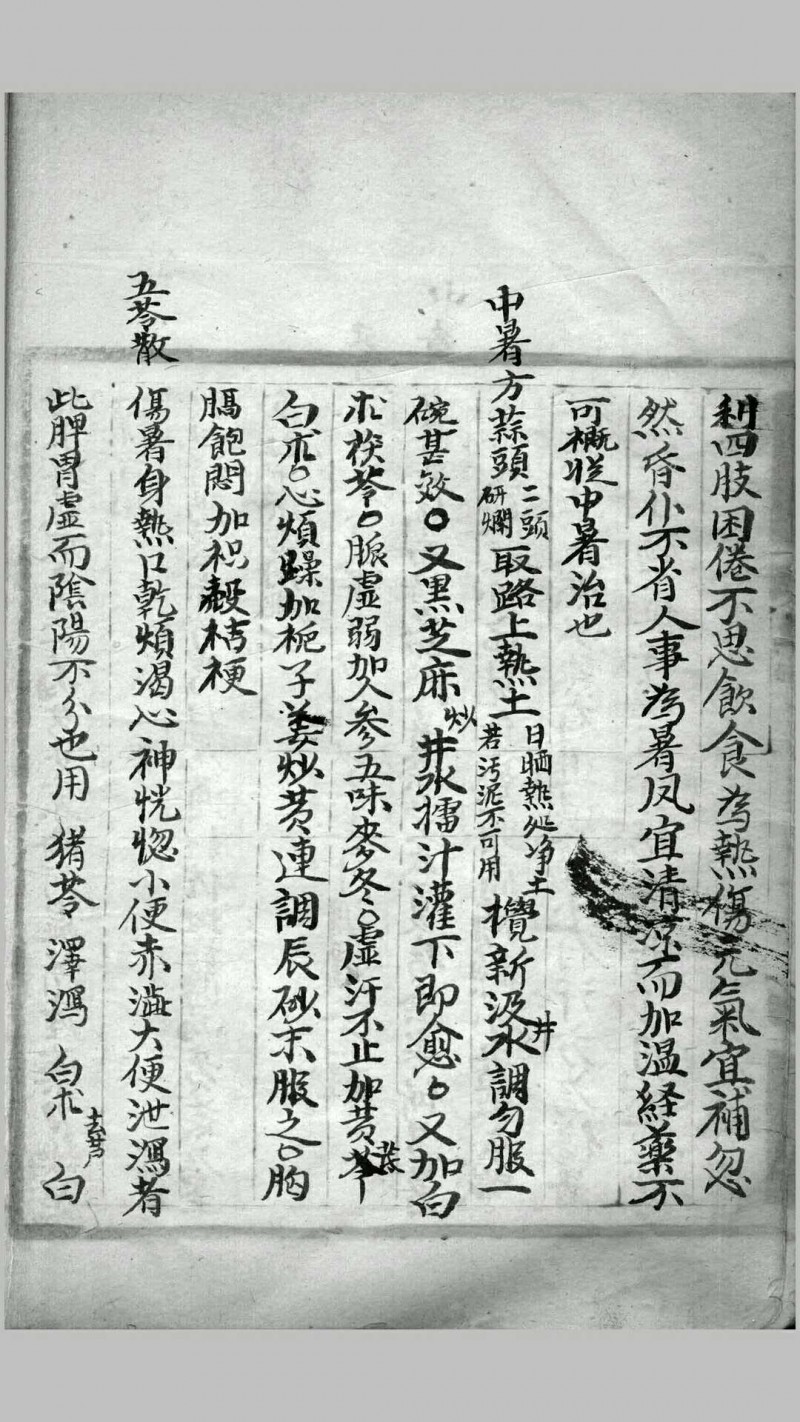 利四肢困倦不思飲食為熱傷元氣宜補忽
然昏仆不省人事為暑风宜清凉而加温経藥不
可概從中暑治也
中暑方蒜頭二頭研爛取路上熱土日晒熱处净土若污泥不可用攪新汲井水調匀服一
碗甚效〇又黒芝麻炒井水擂汁灌下即愈〇又加白
术茯苓〇脈虚弱加人參五味麥冬〇虚汗不止加黄芪
白朮〇心煩躁加梔子姜炒黄連調辰砂末服之〇胸
膈飽悶加枳殼桔梗
五苓散
傷暑身熱口乾煩渴心神恍惚小便赤澁大便泄瀉者
此脾胃虚而陰陽不分也用 猪苓 澤瀉 白朮去芦 白